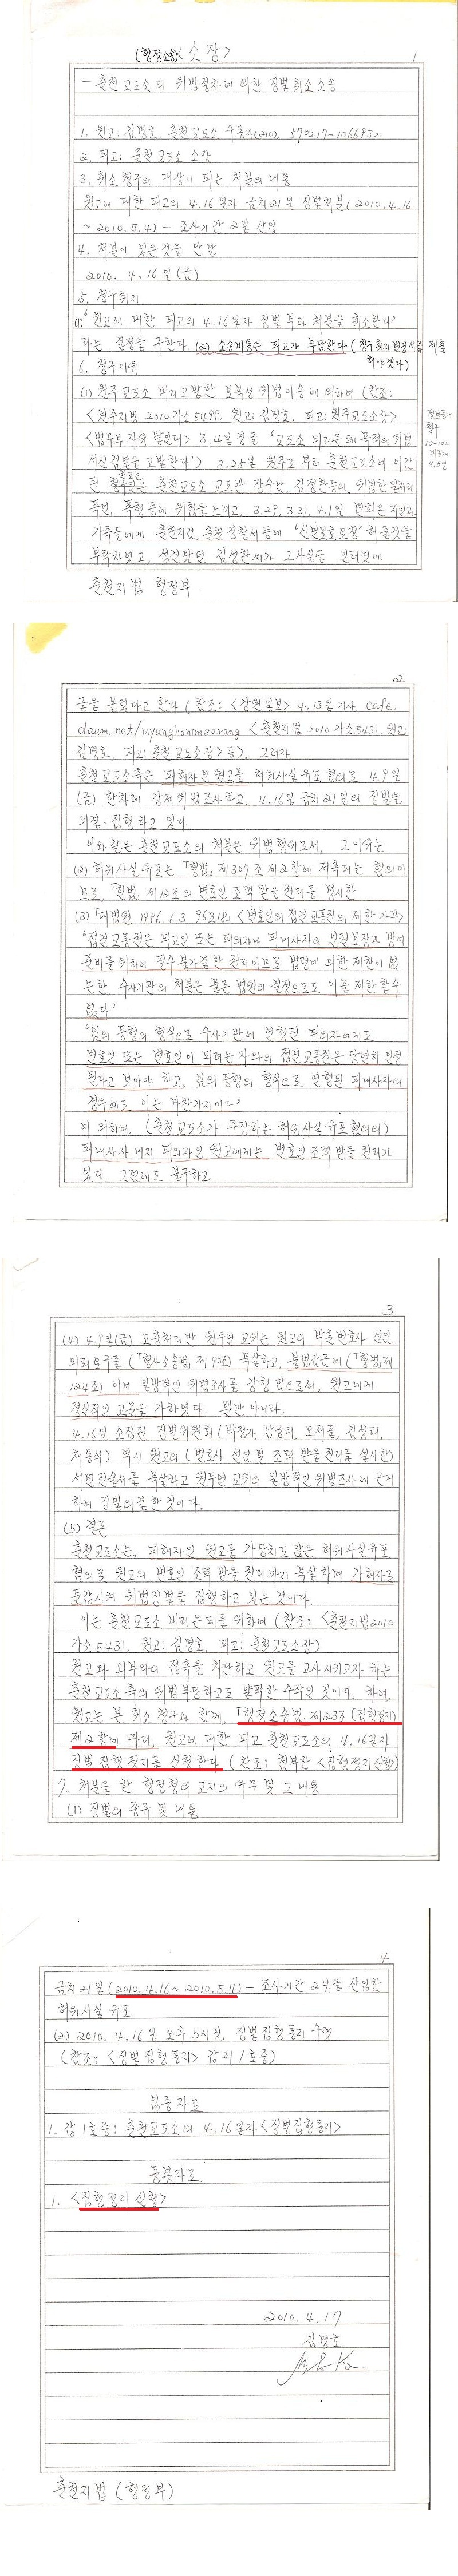 (행정소송) <소 장>
1
- 춘천교도소의 위법절차에 의한 징벌취소 소송
1. 원고: 김명호, 춘천교도소 수용자(210), 570217-1066932
2. 피고: 춘천교도소 소장
3. 취소청구의 대상이 되는 처분의 내용
원고에 대한 피고의 4.16일자 금치21일 징벌처분(2010.4.16
~ 2010.5.4) - 조사기간 2일 산입
4. 처분이 있은 것을 안 날
2010. 4. 16일(금)
5. 청구취지
(1) '원고에 대한 피고의 4.16일자 징벌부과 처분을 취소한다'
라는 결정을 구한다. (2) 소송비용은 피고가 부담한다 (청구취지변경서를 제출
해야겠다)
6. 청구이유
(1) 원주교도소 비리고발한 보복성 위법이송에 의하여 (참조:
<원주지법 2010가소5499. 원고: 김명호, 피고: 원주교도소장>
<법무부 자유발언대> 3.4일 글 '교도소 비리은폐 목적의 위법
서신검열을 고발한다') 3.25일 원주로부터 춘천교도소에 이감
된 원고는 춘천교도소 교도관 장수난, 김정환 등의 위법한
폭언, 폭행 등에 위협을 느끼고, 3.29, 3.31, 4.1일 면회온 지인과
가족들에게 춘천지검, 춘천경찰서 등에 '신변보호요청' 해줄것을
부탁하였고, 접견왔던 김성환씨가 그 사실을 인터넷에
춘천지법 행정부
2
글을 올렸다고 한다 (참조: <강원일보> 4.13일 기사, cafe.
daum.net/myunghonimsarang <춘천지법 2010가소5431, 원고:
김명호, 피고: 춘천교도소장> 등). 그러자
춘천교도소측은 피해자인 원고를 허위사실유포 혐의로 4.9일
(금) 한차례 강제위법조사하고, 4.16일 금치21일의 징벌을
의결·집행하고 있다.
이와 같은 춘천교도소의 처분은 위법행위로서, 그 이유는
(2) 허위사실유포는 「형법」 제307조 제2항에 저촉되는 혐의이
므로, 「헌법」 제12조의 변호인 조력 받을 권리를 명시한
(3) 「대법원 1996.6.3 96모18」 <변호인의 접견교통권의 제한 가부>
'접견교통권은 피고인 또는 피의자나 피내사자의 인권보장과 방어
준비를 위하여 필수불가결한 권리이므로 법령에 의한 제한이 없
는한, 수사기관의 처분은 물론 법원의 결정으로도 이를 제한할 수
없다'
'임의동행의 형식으로 수사기관에 연행된 피의자에게도
변호인 또는 변호인이 되려는 자와의 접견교통권은 당연히 인정
된다고 보아야 하고, 임의동행의 형식으로 연행된 피내사자의
경우에도 이는 마찬가지이다'
에 의하면, (춘천교도소가 주장하는 허위사실유포 혐의의)
피내사자 내지 피의자인 원고에게는 변호인 조력 받을 권리가
있다. 그럼에도 불구하고
3
(4) 4.9일(금) 고충처리반 원두연 교위는 원고의 박훈변호사 선임
의뢰 요구를 (「형사소송법」 제90조) 묵살하고, 불법감금에 (「형법」 제
124조) 이어 일방적인 위법조사를 강행함으로써, 원고에게
정신적인 고문을 가하였다. 뿐만 아니라,
4.16일 소집된 징벌위원회
역시 원고의 (변호사 선임 및 조력 받을 권리를 설시한)
서면진술서를 묵살하고 원두연 교위의 일방적인 위법조사에 근거
하여 징벌의결한 것이다.
(5) 결론
춘천교도소는, 피해자인 원고를 가당치도 않은 허위사실유포
혐의로 원고의 변호인 조력 받을 권리까지 묵살하며 가해자로
둔갑시켜 위법징벌을 집행하고 있는 것이다.
이는 춘천교도소 비리은폐를 위하여 (참조: <춘천지법 2010
가소5431, 원고: 김명호, 피고: 춘천교도소장)
원고와 외부와의 접촉을 차단하고 원고를 고사시키고자 하는
춘천교도소 측의 위법부당하고도 얄팍한 수작인 것이다. 하여,
원고는 본 취소청구와 함께, 「행정소송법」 제23조 (집행정지)
제2항에 따라, 원고에 대한 피고 춘천교도소의 4.16일자
징벌집행정지를 신청한다 (참조: 첨부한 <집행정지신청>)
7. 처분을 한 행정청의 고지의 유무 및 그 내용
(1) 징벌의 종류 및 내용
4
금치21일 (2010.4.16~2010.5.4) - 조사기간 2일을 산입한
허위사실 유포
(2) 2010. 4. 16일 오후 5시경, 징벌집행통지 수령
(참조: <징벌집행통지> 갑제1호증)
입증자료
1. 갑1호증: 춘천교도소의 4.16일자 <징벌집행통지>
동봉자료
1. <집행정지 신청>
2010. 4. 17
김명호
춘천지법 (행정부)